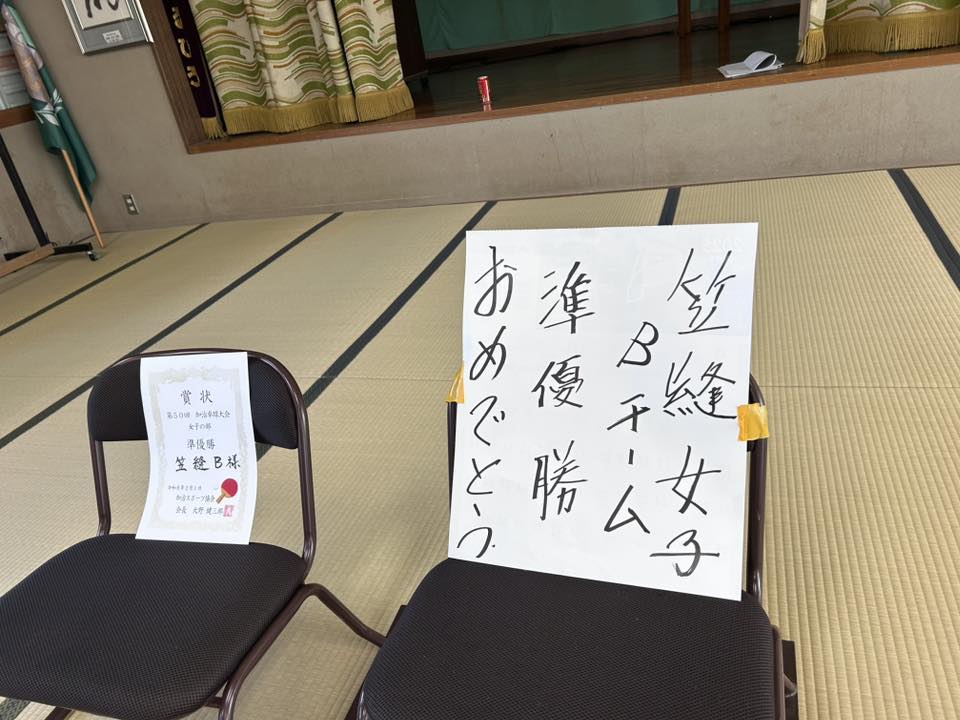 笠縫女子
Bチーム
準優勝
おめでとう
賞状
第50回 加治卓球大会
女子の部
準優勝
笠縫B様
加治スポーツ協会
会長 大野 健三郎